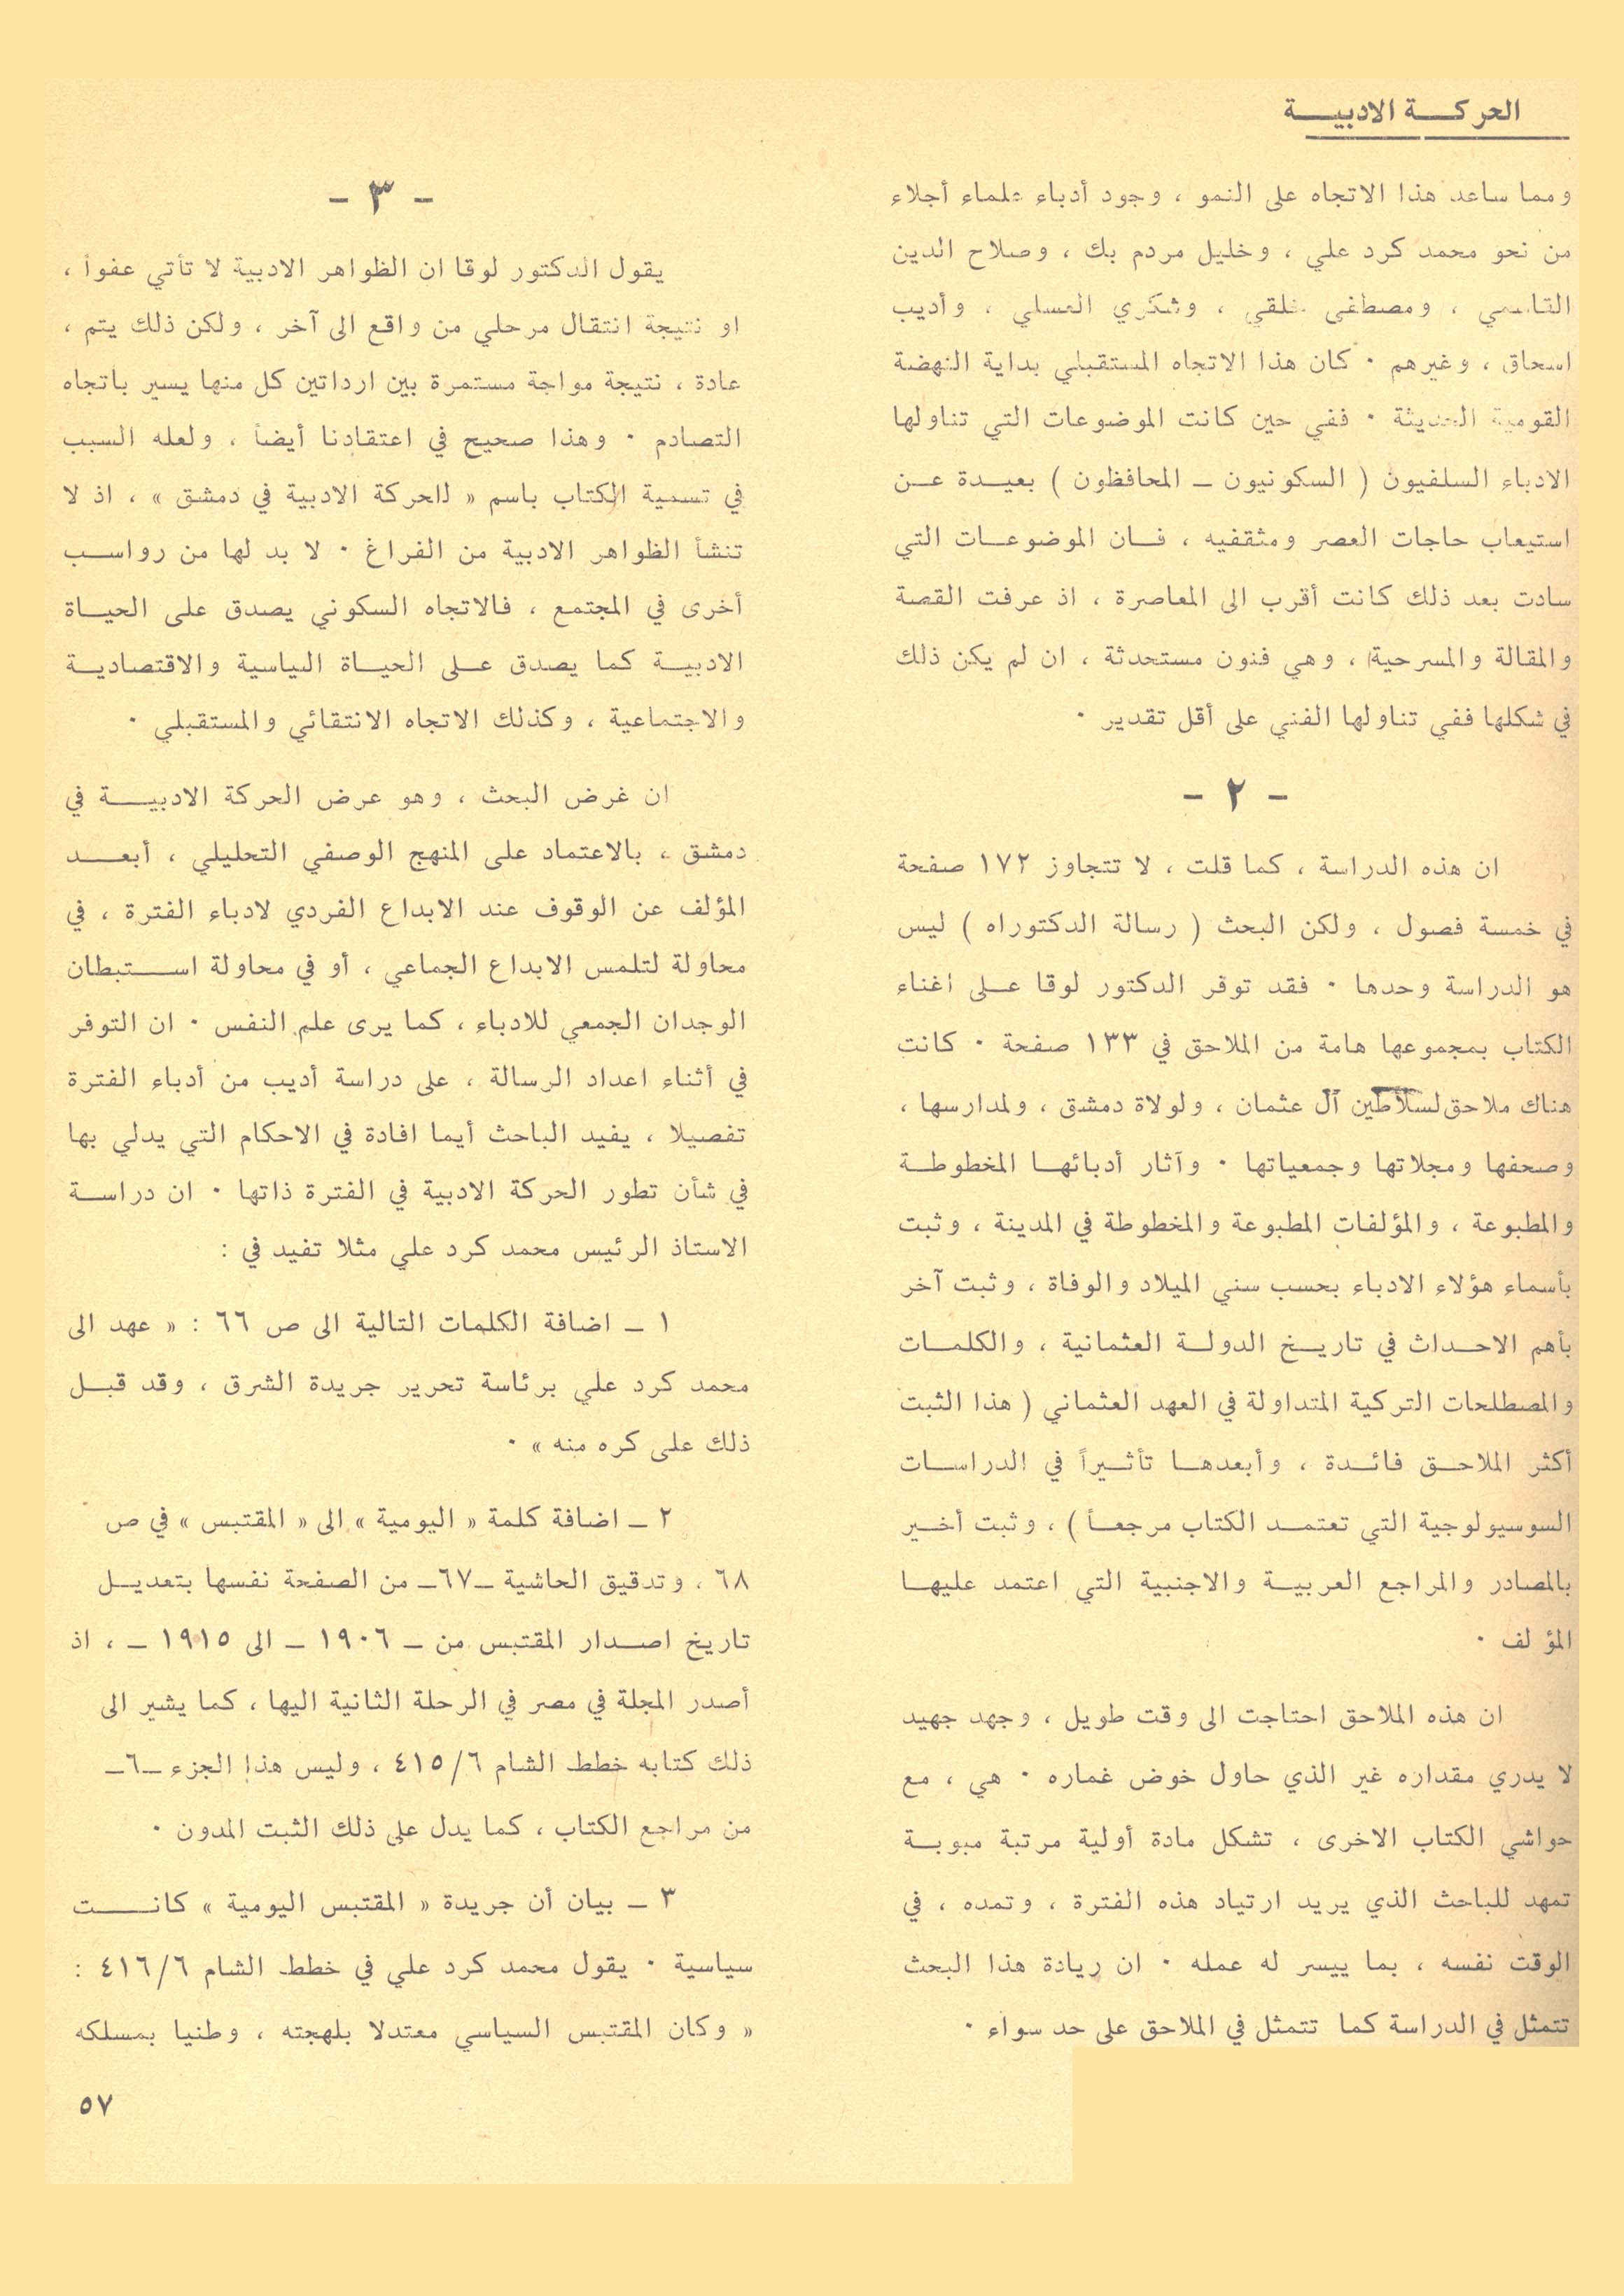 الحركة الادبية
ومما ساعد هذا الاتجاه على النمو ، وجود أدباء علماء أجلاء
من نحو محمد كرد علي ، وخليل مردم بك ، وصلاح الدين
القاسمي ، ومصطفى خلقي ، وشكري العسلي ، وأديب
اسحاق ، وغيرهم . كان هذا الاتجاه المستقبلي بداية النهضة
القومية الحديثة . ففي حين كانت الموضوعات التي تناولها
الادباء السلفيون ( السكونيون ـ المحافظون ) بعيدة عن
استيعاب حاجات العصر ومثقفيه ، فان الموضوعات التي
سادت بعد ذلك كانت أقرب الى المعاصرة ، اذ عرفت القصة
والمقالة والمسرحية ، وهي فنون مستحدثة ، ان لم يكن ذلك
في شكلها ففي تناولها الفني على أقل تقدير .
- ٢ -
ان هذه الدراسة ، كما قلت ، لا تتجاوز ١٧٢ صفحة
في خمسة فصول ، ولكن البحث ( رسالة الدكتوراه ) ليس
هو الدراسة وحدها . فقد توفر الدكتور لوقا على اغناء
الكتاب بمجموعها هامة من الملاحق في ١٣٣ صفحة . كانت
هناك ملاحق لسلاطين آل عثمان ، ولولاة دمشق ، ولمدارسها ،
وصحفها ومجلاتها وجمعياتها . وآثار أدبائها المخطوطة
والمطبوعة ، والمؤلفات المطبوعة والمخطوطة في المدينة ، وثبت
بأسماء هؤلاء الادباء بحسب سني الميلاد والوفاة ، وثبت آخر
بأهم الاحداث في تاريخ الدولة العثمانية ، والكلمات
والمصطلحات التركية المتداولة في العهد العثماني ( هذا الثبت
أكثر الملاحق فائدة ، وأبعدها تأثيراً في الدراسات
السوسيولوجية التي تعتمد الكتاب مرجعاً ) ، وثبت أخير
بالمصادر والمراجع العربية والاجنبية التي اعتمد عليها
المؤلف .
ان هذه الملاحق احتاجت الى وقت طويل ، وجهد جهيد
لا يدري مقداره غير الذي حاول خوض غماره . هي ، مع
حواشي الكتاب الاخرى ، تشكل مادة أولية مرتبة مبوبة
تمهد للباحث الذي يريد ارتياد هذه الفترة ، وتمده ، في
الوقت نفسه ، بما ييسر له عمله . ان ريادة هذا البحث
تتمثل في الدراسة كما تتمثل في الملاحق على حد سواء .
- ٣ -
يقول الدكتور لوقا ان الظواهر الادبية لا تأتي عفواً ،
او نتيجة انتقال مرحلي من واقع الى آخر ، ولكن ذلك يتم ،
عادة ، نتيجة مواجة مستمرة بين ارداتين كل منها يسير باتجاه
التصادم . وهذا صحيح في اعتقادنا أيضاً ، ولعله السبب
في تسمية الكتاب باسم « للحركة الادبية في دمشق » ، اذ لا
تنشأ الظواهر الادبية من الفراغ . لا بد لها من رواسب
أخرى في المجتمع ، فالاتجاه السكوني يصدق على الحياة
الادبية كما يصدق على الحياة السياسية والاقتصادية
والاجتماعية ، وكذلك الاتجاه الانتقائي والمستقبلي .
ان غرض البحث ، وهو عرض الحركة الادبية في
دمشق ، بالاعتماد على المنهج الوصفي التحليلي ، أبعد
المؤلف عن الوقوف عند الابداع الفردي لادباء الفترة ، في
محاولة لتلمس الابداع الجماعي ، أو في محاولة استبطان
الوجدان الجمعي للادباء ، كما يرى علم النفس . ان التوفر
في أثناء اعداد الرسالة ، على دراسة أديب من أدباء الفترة
تفصيلا ، يفيد الباحث أيما افادة في الاحكام التي يدلي بها
في شأن تطور الحركة الادبية في الفترة ذاتها . ان دراسة
الاستاذ الرئيس محمد كرد علي مثلا تفيد في :
١ ـ اضافة الكلمات التالية الى ص ٦٦ : « عهد الى
محمد كرد علي برئاسة تحرير جريدة الشرق ، وقد قبل
ذلك على كره منه » .
٢ ـ اضافة كلمة « اليومية » الى « المقتبس » في ص
٦٨ ، وتدقيق الحاشية ـ٦٧ـ من الصفحة نفسها بتعديل
تاريخ اصدار المقتبس من ـ ١٩٠٦ ـ الى ١٩١٥ ـ ، اذ
أصدر المجلة في مصر في الرحلة الثانية اليها ، كما يشير الى
ذلك كتابه خطط الشام ٤١٥/٦ ، وليس هذا الجزء ـ٦ـ
من مراجع الكتاب ، كما يدل على ذلك الثبت المدون .
٣ ـ بيان أن جريدة « المقتبس اليومية » كانت
سياسية . يقول محمد كرد علي في خطط الشام ٤١٦/٦ :
« وكان المقتبس السياسي معتدلا بلهجته ، وطنيا بمسلكه
٥٧